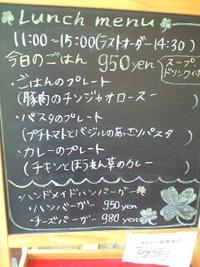 Lunch menu
11:00~15:00(ラストオーダー14:30)
今日のごはん 950yen (スープ、ドリンク付
・ごはんのプレート
(豚肉のチンジャオロース)
・パスタのプレート
(プチトマトとバジルのあっさりパスタ)
・カレーのプレート
(チキンとほうれん草のカレー)
・ハンドメイドハンバーガー
・ハンバーガー 950yen
・チーズバーガー 980yen